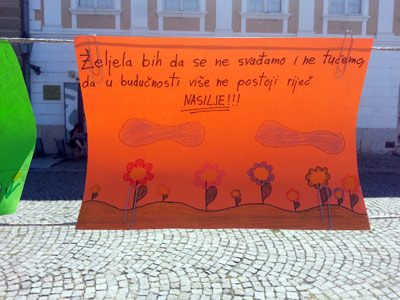 Željela bih da se ne svađamo i ne tučemo,
da u budućnosti više ne postoji riječ
NASILJE!!!